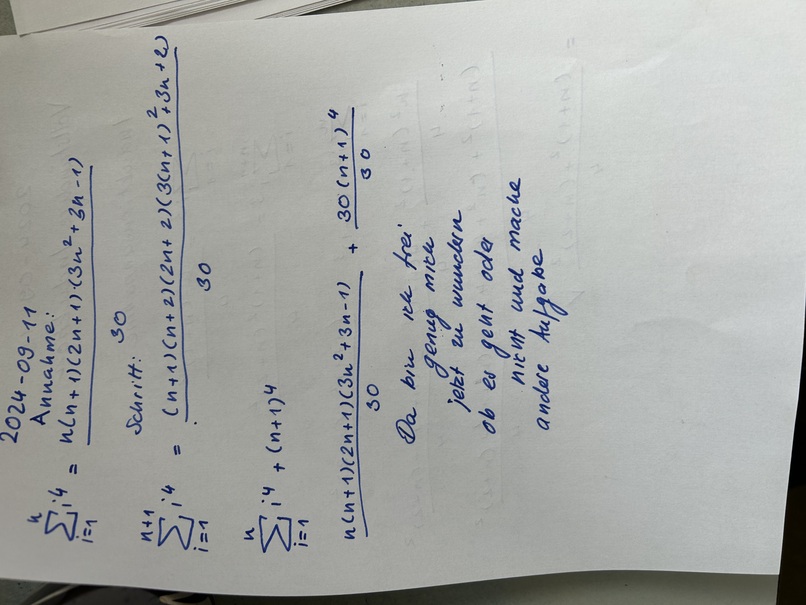 2024-09-11
Annahme:
n∑i=1 i⁴ = n(n+1)(2n+1)·(3n²+3n-1) / 30
Schritt:
n+1∑i=1 i⁴ = (n+1)(n+2)(2n+2)(3(n+1)²+3n+2) / 30
n∑i=1 i⁴ + (n+1)⁴
n(n+1)(2n+1)(3n²+3n-1) / 30 + 30(n+1)⁴ / 30
Da bin ich frei
genug mich
jetzt zu wundern
ob es geht oder
nicht und mache
andere Aufgabe